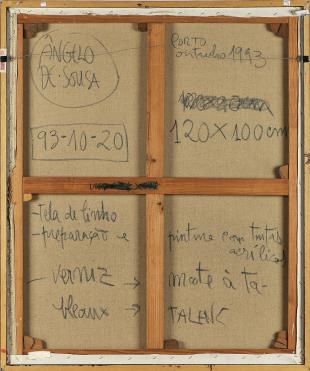 ÂNGELO
DE·SOUSA
PORTO
outubro 1993
93-10-20
120X100cm
-Tela de linho
-preparação e pintura com tintas acrílicas
- verniz → mate à TA-
bleaux → TALENS